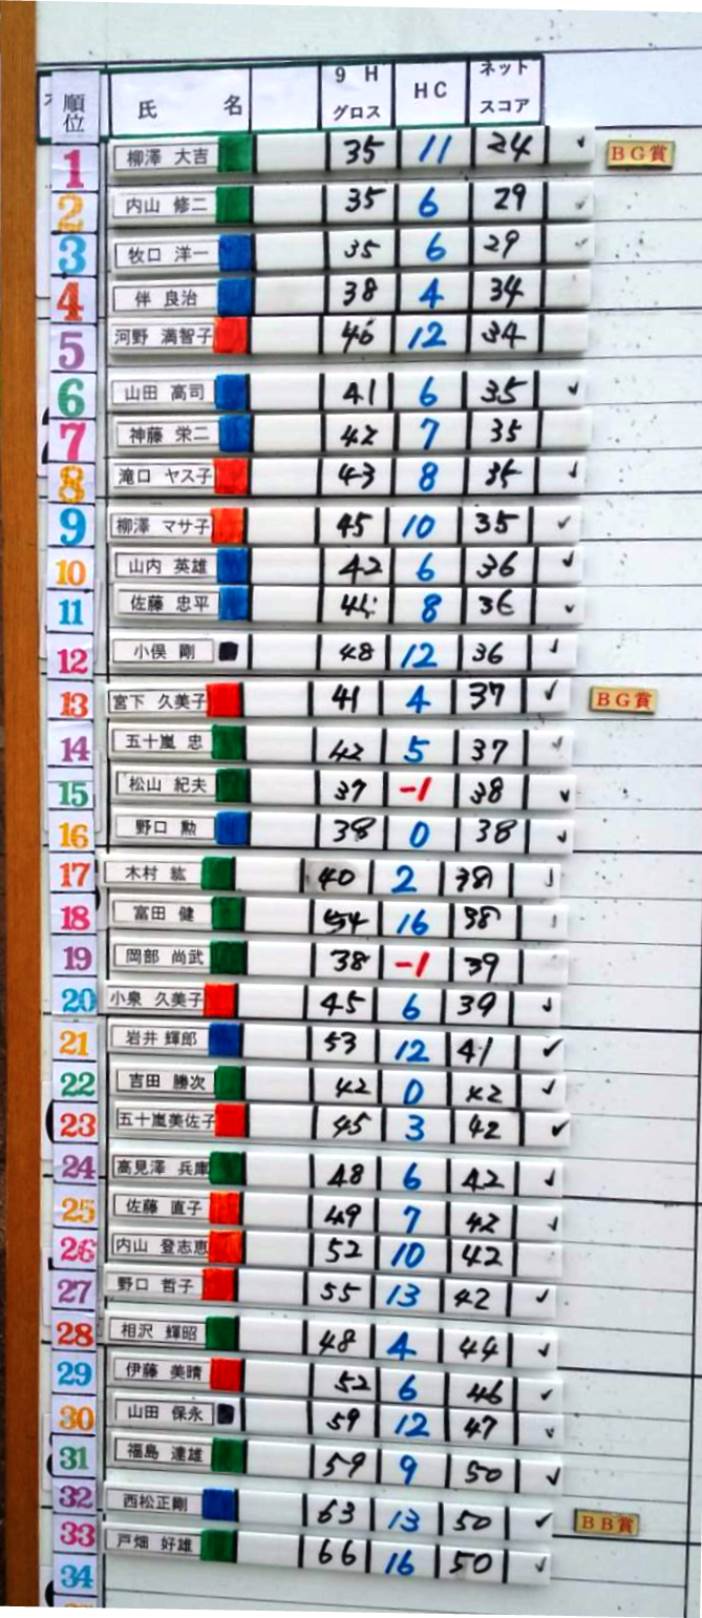 順位 氏 名 9 H グロス HC ネット スコア
1 柳澤 大吉 35 11 24 BG賞
2 内山 修二 35 6 29
3 牧口 洋一 35 6 29
4 伴 良治 38 4 34
5 河野 満智子 46 12 34
6 山田 高司 41 6 35
7 神藤 栄二 42 7 35
8 滝口 ヤス子 43 8 35
9 柳澤 マサ子 45 10 35
10 山内 英雄 42 6 36
11 佐藤 忠平 44 8 36
12 小俣 剛 48 12 36
13 宮下 久美子 41 4 37 BG賞
14 五十嵐 忠 42 5 37
15 松山 紀夫 37 -1 38
16 野口 勲 38 0 38
17 木村 紘 40 2 38
18 富田 健 54 16 38
19 岡部 尚武 38 -1 39
20 小泉 久美子 45 6 39
21 岩井 輝郎 53 12 41
22 吉田 勝次 42 0 42
23 五十嵐美佐子 45 3 42
24 高見澤 兵庫 48 6 42
25 佐藤 直子 49 7 42
26 内山 登志恵 52 10 42
27 野口 哲子 55 13 42
28 相沢 輝昭 48 4 44
29 伊藤 美晴 52 6 46
30 山田 保永 59 12 47
31 福島 達雄 59 9 50
32 西松正剛 63 13 50 BB賞
33 戸畑 好雄 66 16 50
34